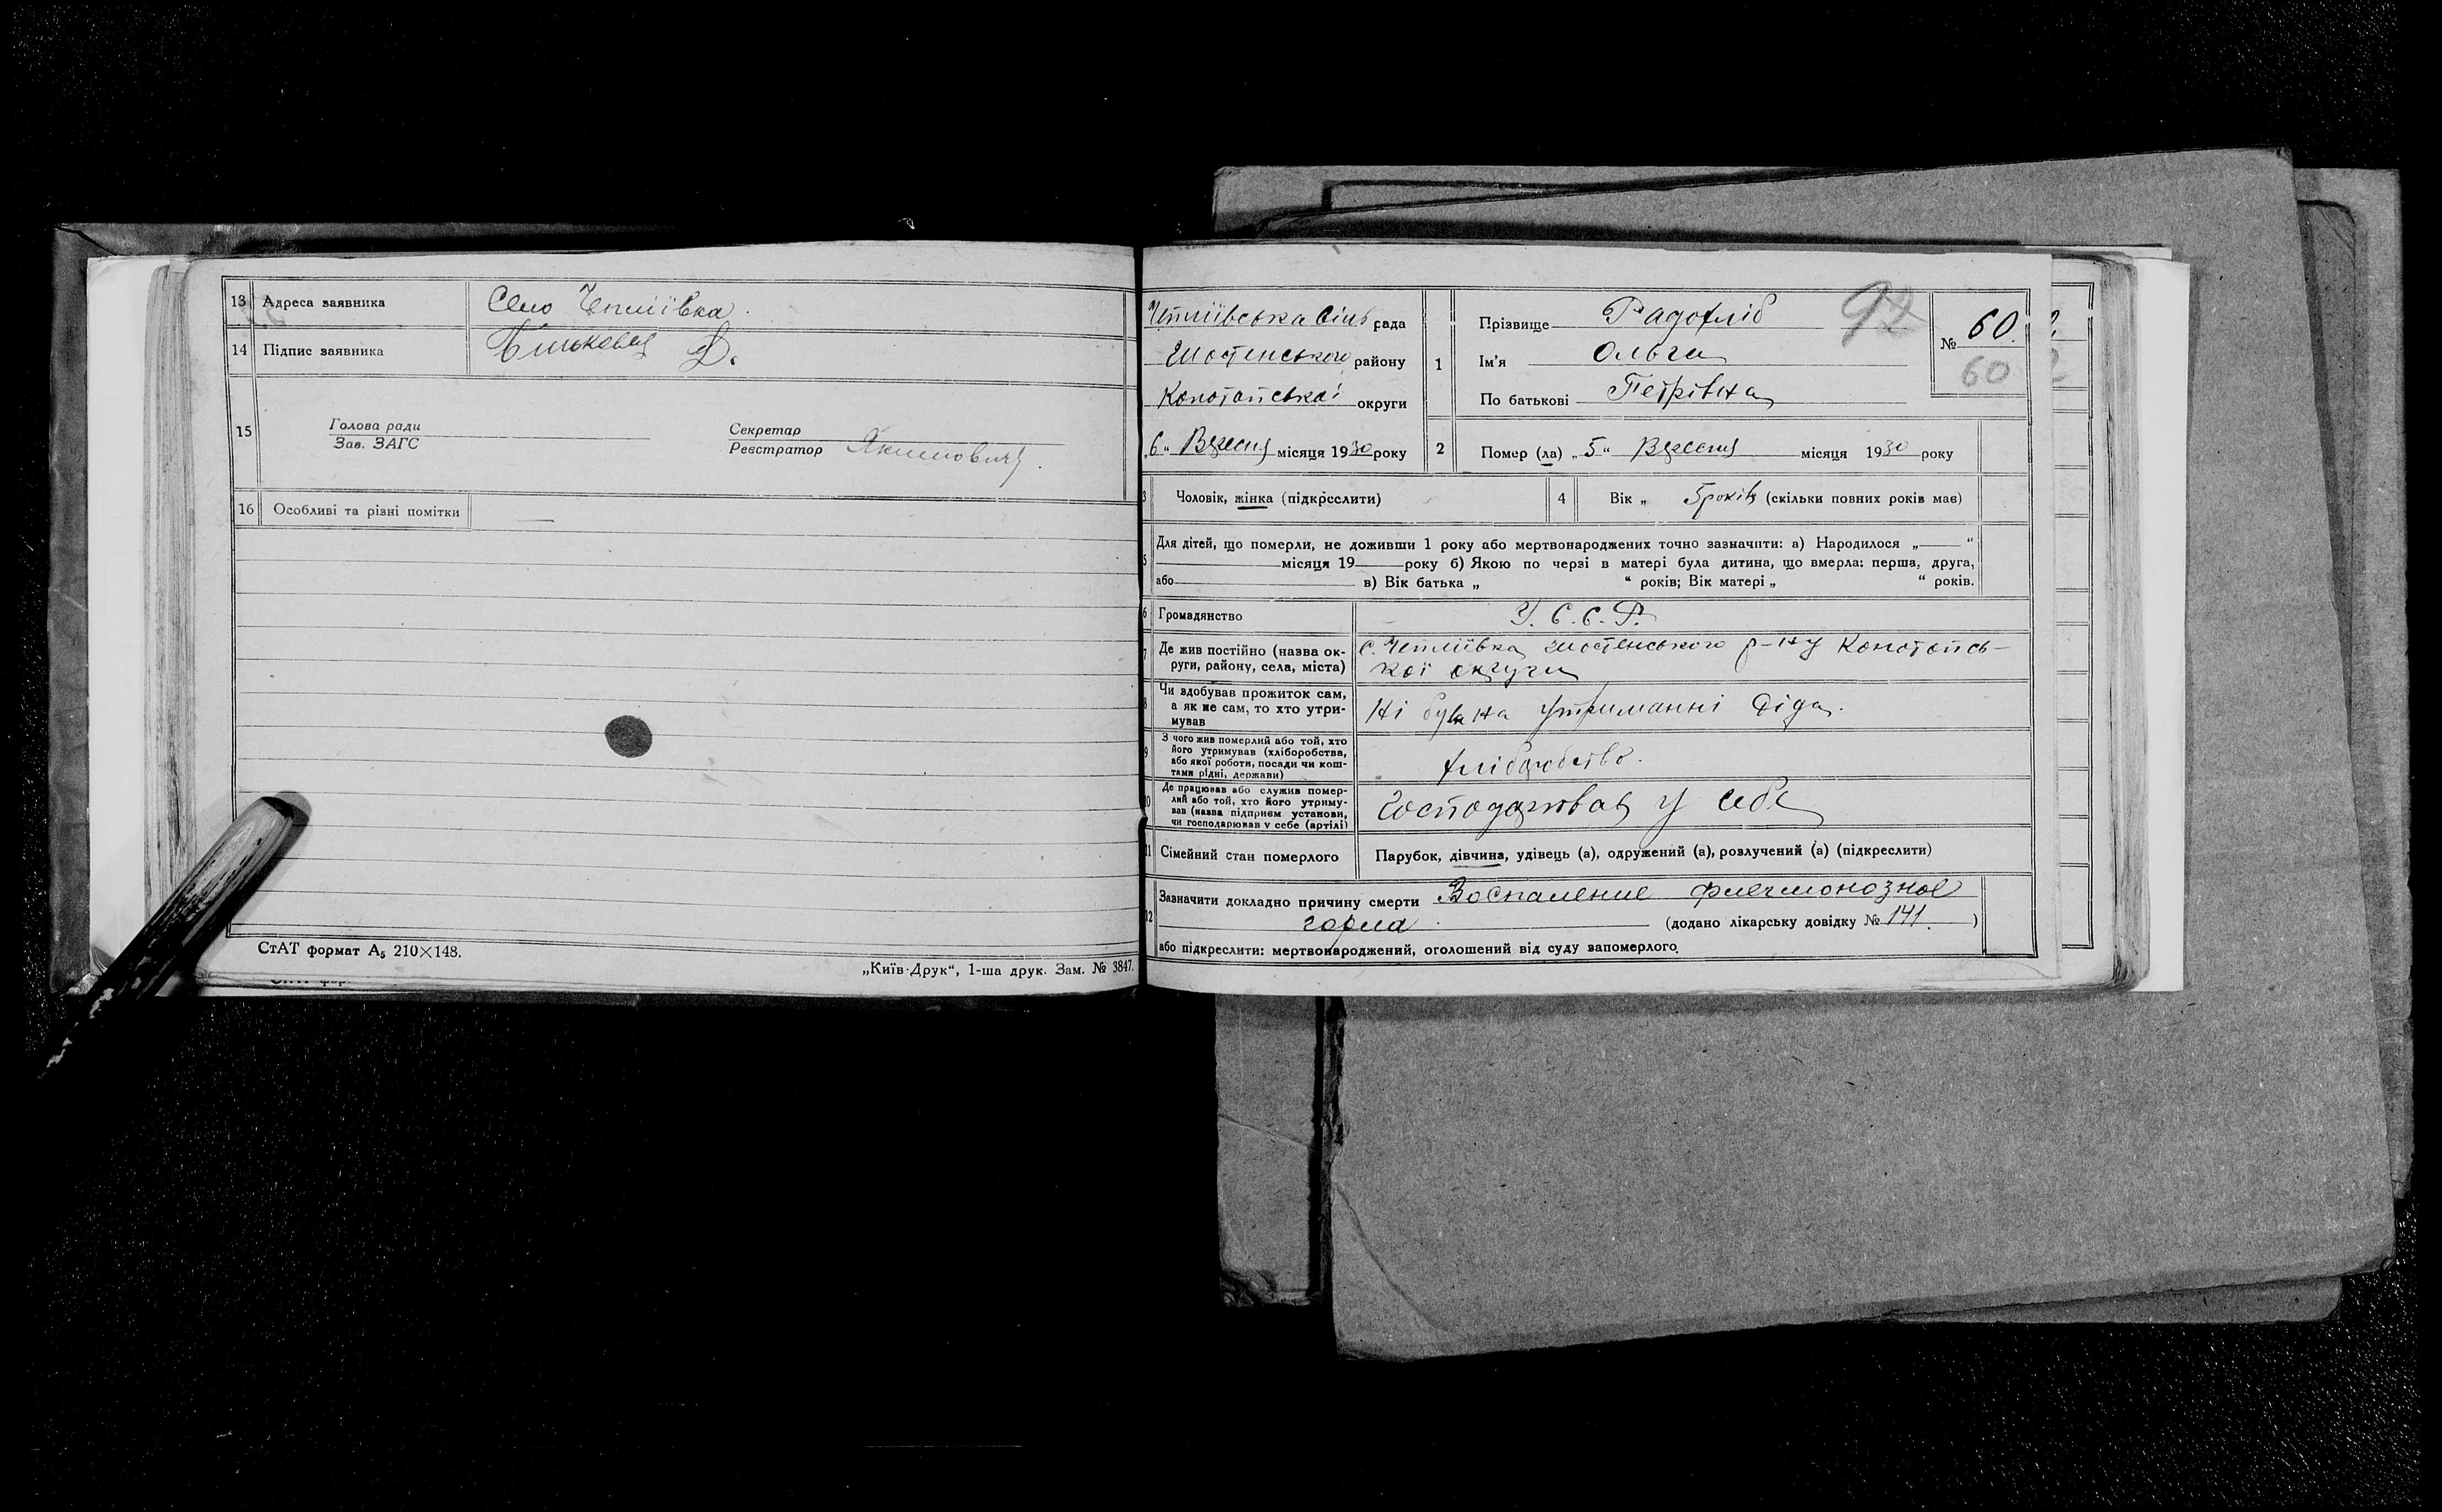 13 Адреса заявника Село Чепліївка.
14 Підпис заявника Д.
15 Голова ради
Зав. ЗАГС
Секретар
Реєстратор Якимович
16 Особливі та різні помітки —
СтАТ формат А5 210×148.
„Київ-Друк“, 1-ша друк. Зам. № 3847.
Чепліївська Сіль рада
Шостенського району
Конотопської округи
„6“ Вересня місяця 1930 року
1 Прізвище Радохліб
Ім'я Ольга
По батькові Петрівна
92
№ 60.
60
2 Помер (ла) „5“ Вересня місяця 1930 року
3 Чоловік, жінка (підкреслити)
4 Вік „ 5 років (скільки повних років має)
5 Для дітей, що померли, не доживши 1 року або мертвонароджених точно зазначити: а) Народилося „—“
місяця 19— року б) Якою по черзі в матері була дитина, що вмерла: перша, друга,
або в) Вік батька „ “ років; Вік матері „ “ років.
6 Громадянство У.С.С.Р.
7 Де жив постійно (назва ок-
руги, району, села, міста)
с. Чепліївка Шостенського р-ну Конотопсь-
кої округи
8 Чи здобував прожиток сам,
а як не сам, то хто утри-
мував
Ні була на утриманні Діда.
9 З чого жив померлий або той, хто
його утримував (хліборобства,
або якої роботи, посади чи кош-
тами рідні, держави)
хліборобство.
10 Де працював або служив помер-
лий або той, хто його утриму-
вав (назва підприєм установи,
чи господарював у себе (артілі)
Господарював у себе
11 Сімейний стан померлого Парубок, дівчина, удівець (а), одружений (а), розлучений (а) (підкреслити)
12 Зазначити докладно причину смерти Воспаление флегмонозное
горла (додано лікарську довідку № 141. )
або підкреслити: мертвонароджений, оголошений від суду запомерлого.